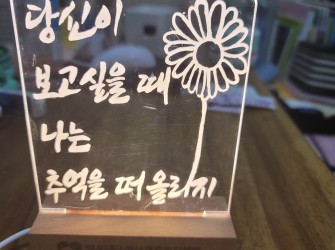 당신이
보고싶을 때
나는
추억을 떠올리지